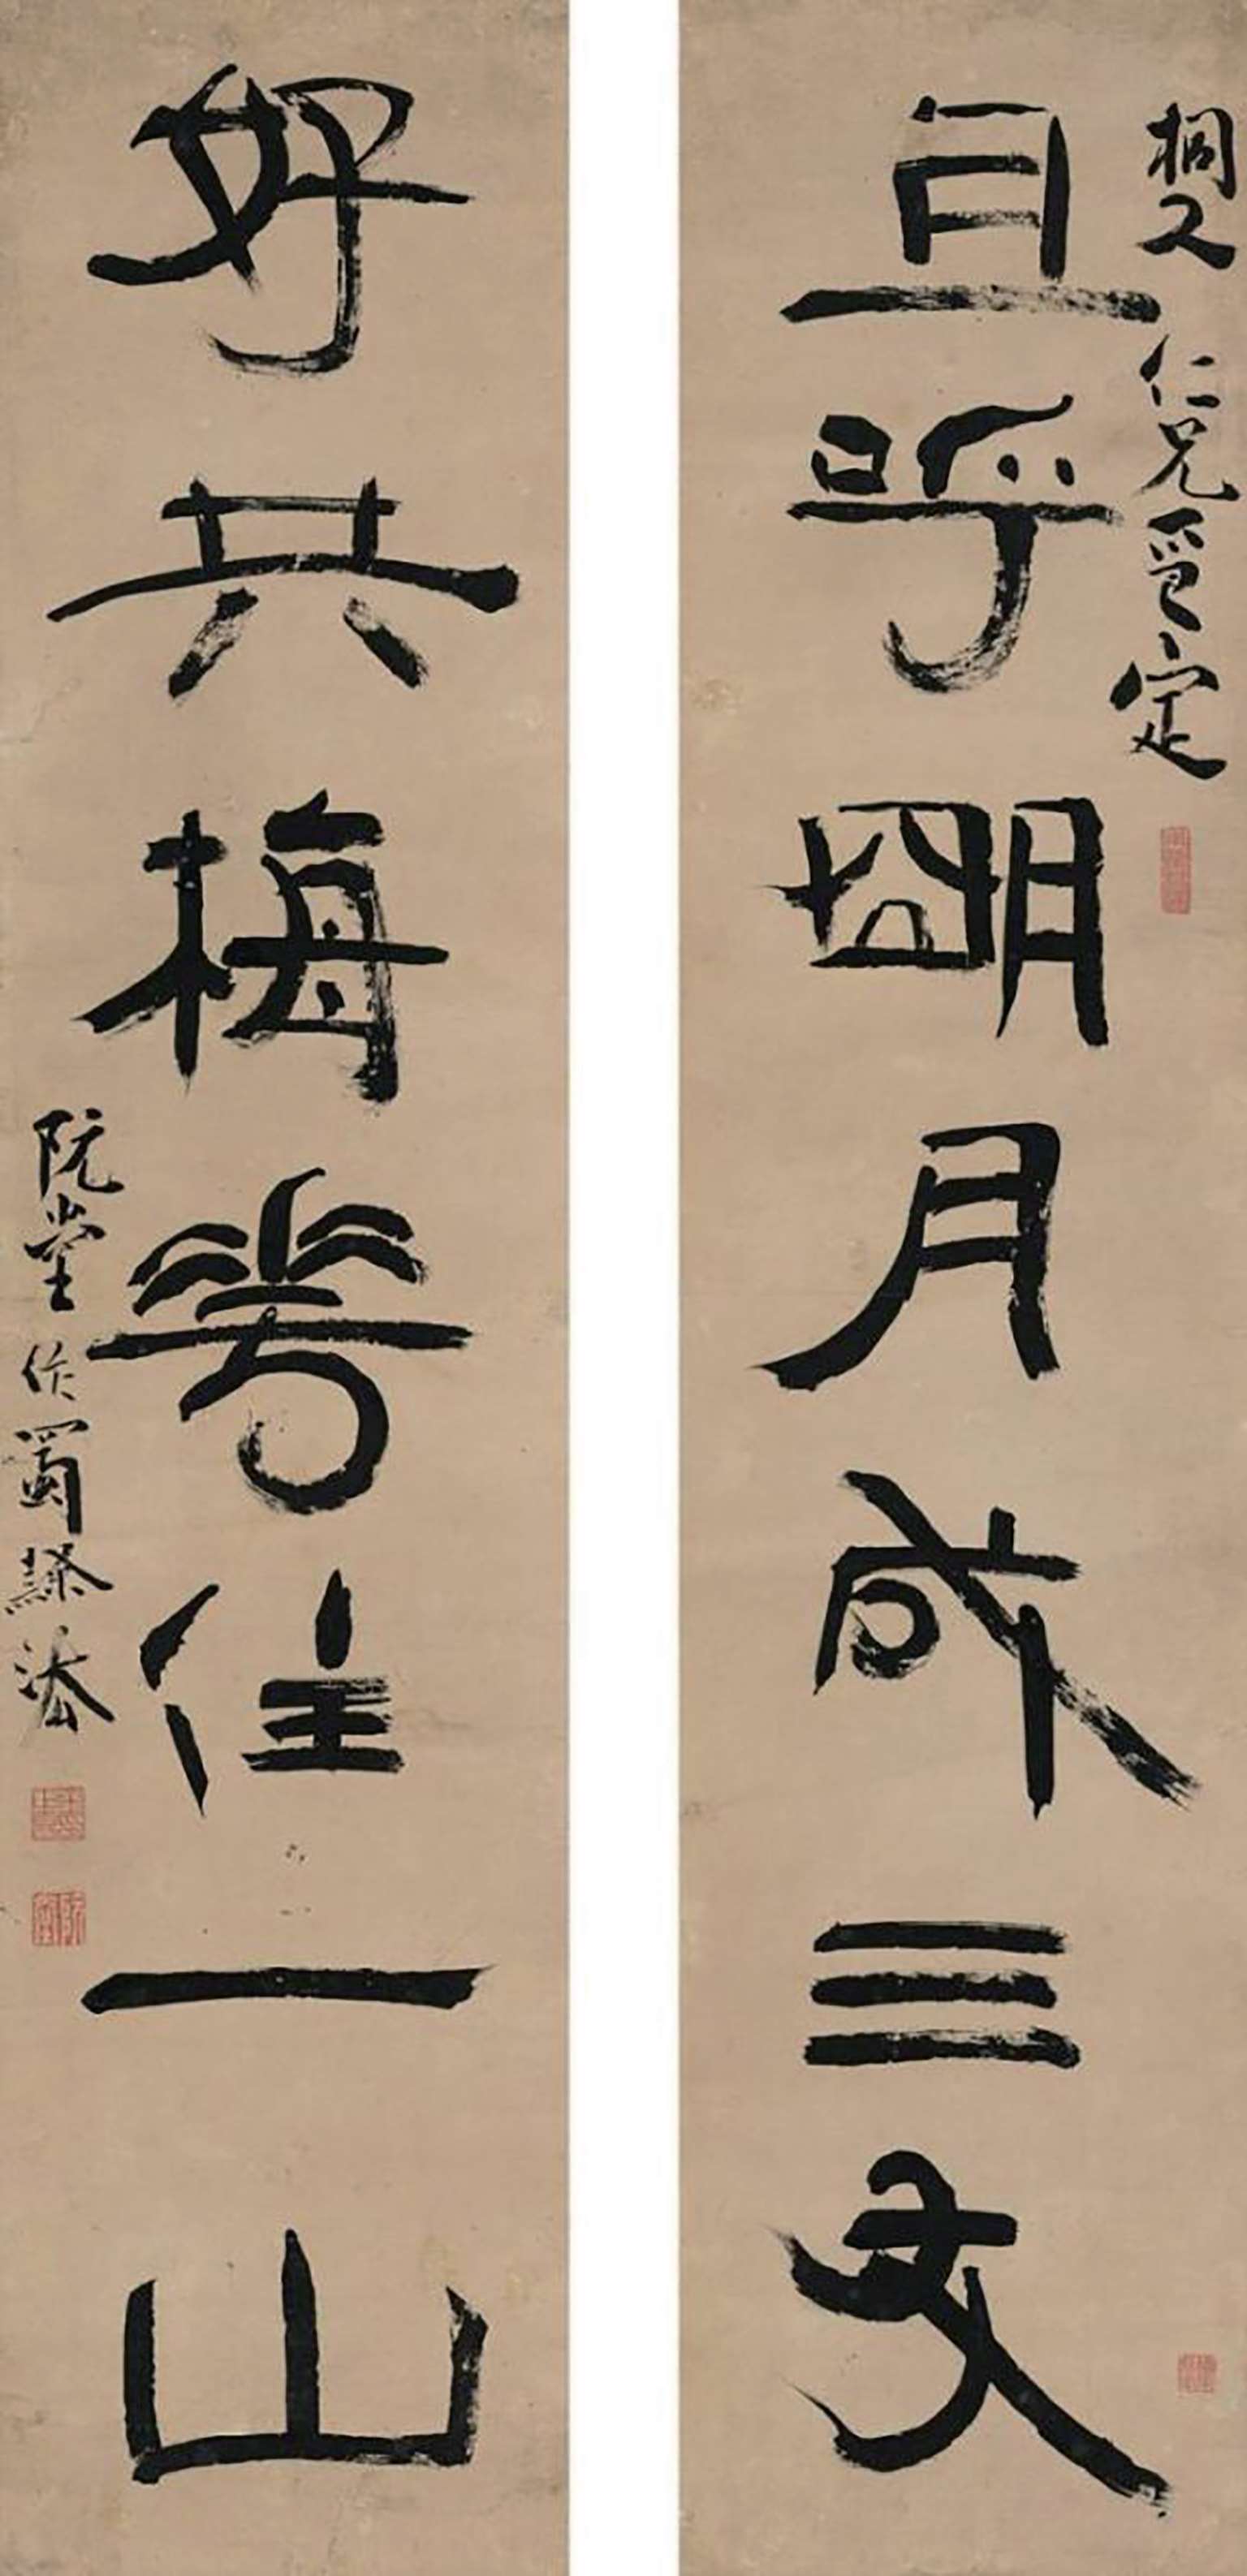 桐人仁兄受定
且呼明月成三友
好共梅花住一山
阮堂作蜀隸法